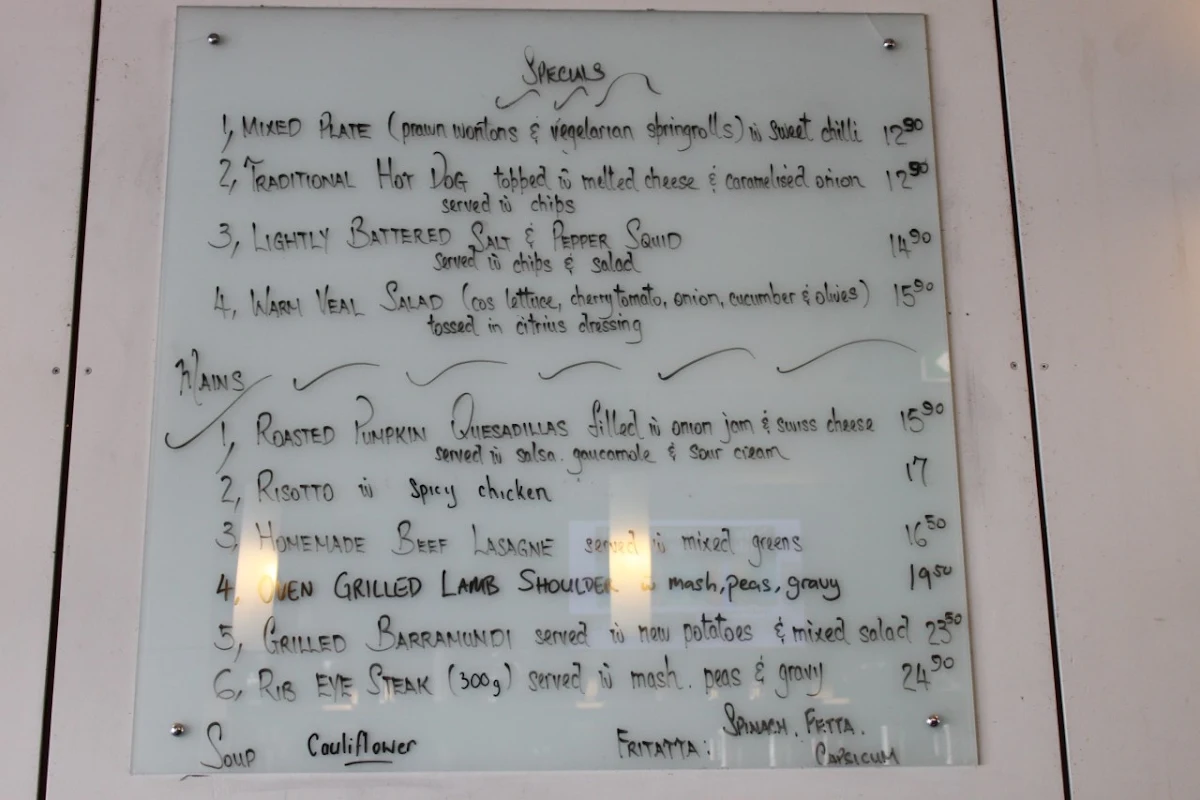 SPECIALS
1, MIXED PLATE (prawn wontons & vegetarian springrolls) w sweet chilli 12 90
2, TRADITIONAL HOT DOG topped w melted cheese & caramelised onion 12 90
served w chips
3, LIGHTLY BATTERED SALT & PEPPER SQUID 14 90
served w chips & salad
4, WARM VEAL SALAD (cos lettuce, cherry tomato, onion, cucumber & olives) 15 90
tossed in citrius dressing
MAINS
1, ROASTED PUMPKIN QUESADILLAS filled w onion jam & swiss cheese 15 90
served w salsa. gaucamole & sour cream
2, RISOTTO w spicy chicken 17
3, HOMEMADE BEEF LASAGNE served w mixed greens 16 50
4, OVEN GRILLED LAMB SHOULDER w mash, peas, gravy 19 50
5, GRILLED BARRAMUNDI served w new potatoes & mixed salad 23 50
6, RIB EYE STEAK (300g) served w mash. peas & gravy 24 90
SOUP Cauliflower
FRITATTA: SPINACH. FETTA.
CAPSICUM